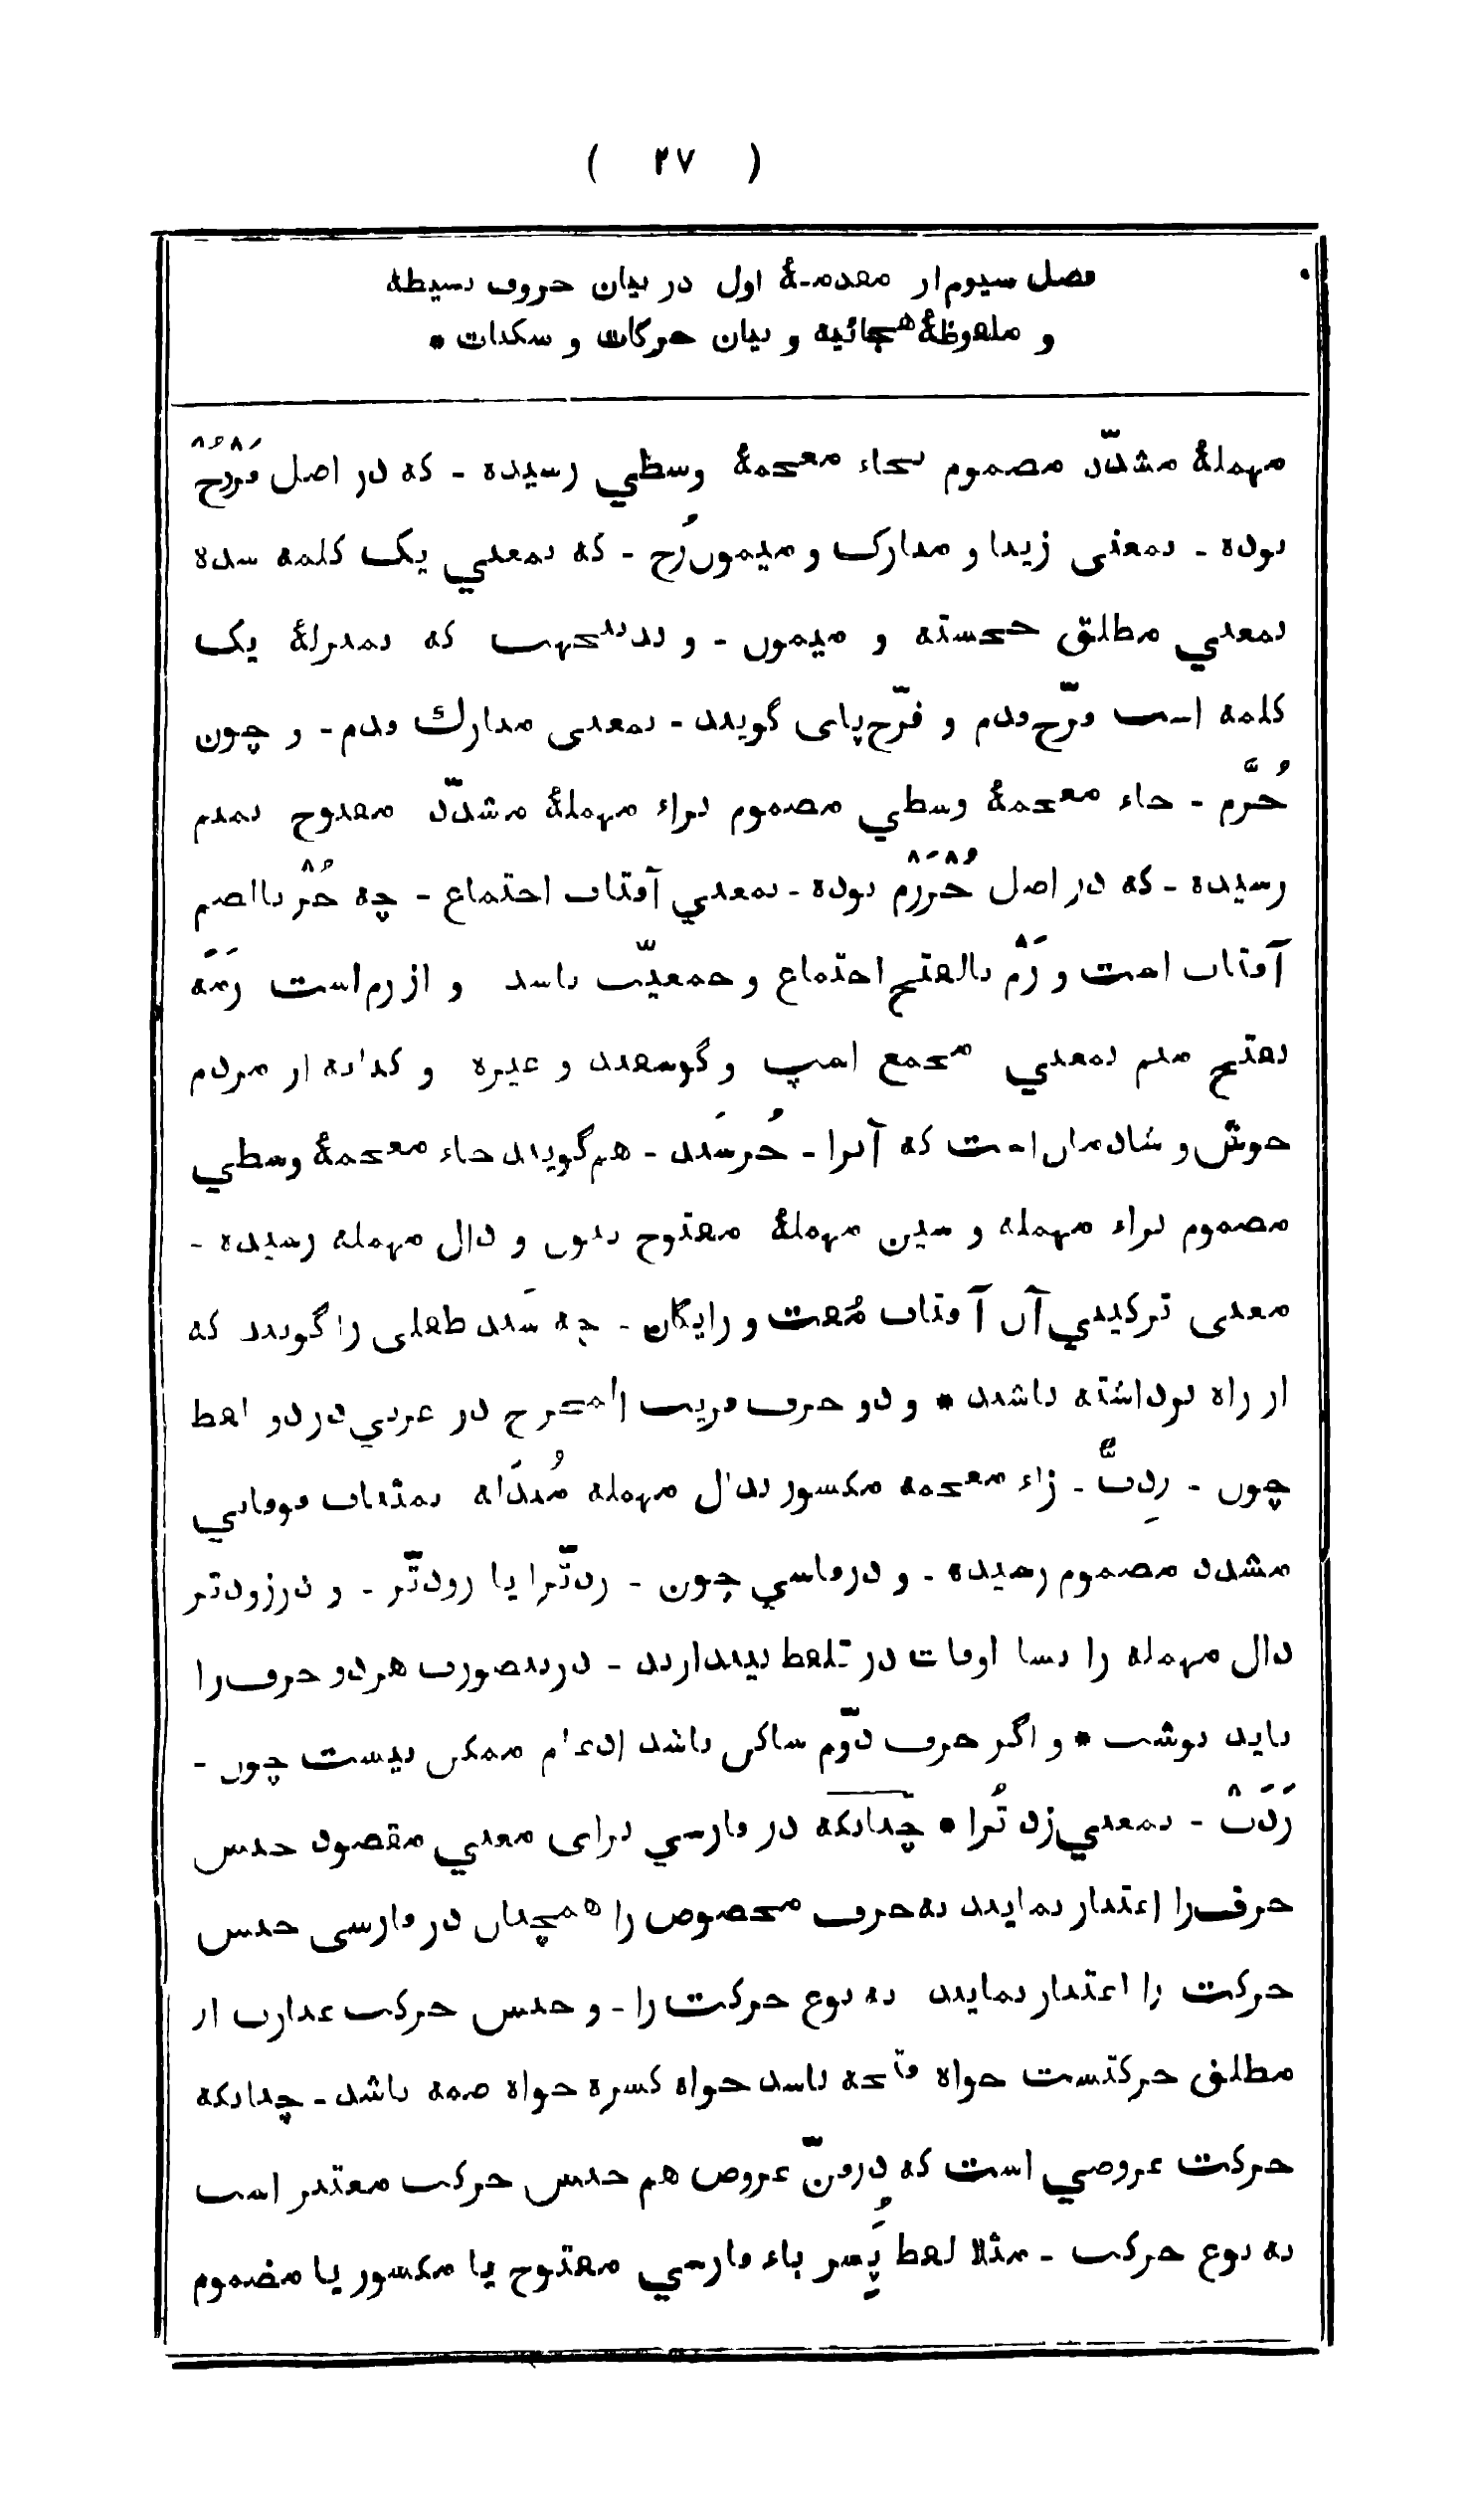 ( ٢٧ )
فصل سیوم از مقدمـهٔ اول در بیان حروف بسیطه
و ملفوظهٔ هجائیه و بیان حرکات و سکنات *
مهملهٔ مشدّد مضموم بخاء معجمهٔ وسطي رسیده - که در اصل فَرْرُخْ
بوده - بمعنی زیبا و مبارک و میمون رُخ - که بمعني یک کلمه شده
بمعني مطلق خجسته و میمون - و بدینجهت که بمنزلهٔ یک
کلمه است فرّخ قدم و فرّخ پای گویند - بمعنی مبارك قدم - و چون
خُرَّم - خاء معجمهٔ وسطي مضموم براء مهملهٔ مشدّد مفتوح بمیم
رسیده - که در اصل خُرْرَمْ بوده - بمعني آفتاب اجتماع - چه خُرْ بالضم
آفتاب است و رَمْ بالفتح اجتماع و جمعیّت باشد و از رم است رَمَه
بفتح میم بمعني مجمع اسپ و گوسفند و غیره و کنایه از مردم
خوش و شادمان است که آنرا - خُرسَند - هم گویند خاء معجمهٔ وسطي
مضموم براء مهمله و سین مهملهٔ مفتوح بنون و دال مهمله رسیده -
معنی ترکیبي آن آفتاب مُفت و رایگان - چه سَند طفلی را گویند که
از راه برداشته باشند * و دو حرف قریب المخرج در عربي در دو لفظ
چون - زِدتُّ - زاء معجمه مکسور بدال مهمله مُبدَله بمثناة فوقاني
مشدد مضموم رسیده - و در فارسي چون - زدتّرا یا زودتّر - و در زودتر
دال مهمله را بسا اوقات در تلفظ بیندازند - درینصورت هر دو حرف را
باید نوشت * و اگر حرف دوّم ساکن باشد ادغام ممکن نیست چون -
زَدَتْ - بمعني زد تُرا * چنانکه در فارسي برای معني مقصود جنس
حرف را اعتبار نمایند نه حرف مخصوص را همچنان در فارسی جنس
حرکت را اعتبار نمایند نه نوع حرکت را - و جنس حرکت عبارت از
مطلق حرکتست خواه فتحه باشد خواه کسره خواه ضمه باشد - چنانکه
حرکت عروضي است که در فنّ عروض هم جنس حرکت معتبر است
نه نوع حرکت - مثلا لفظ پسر باء فارسي مفتوح یا مکسور یا مضموم